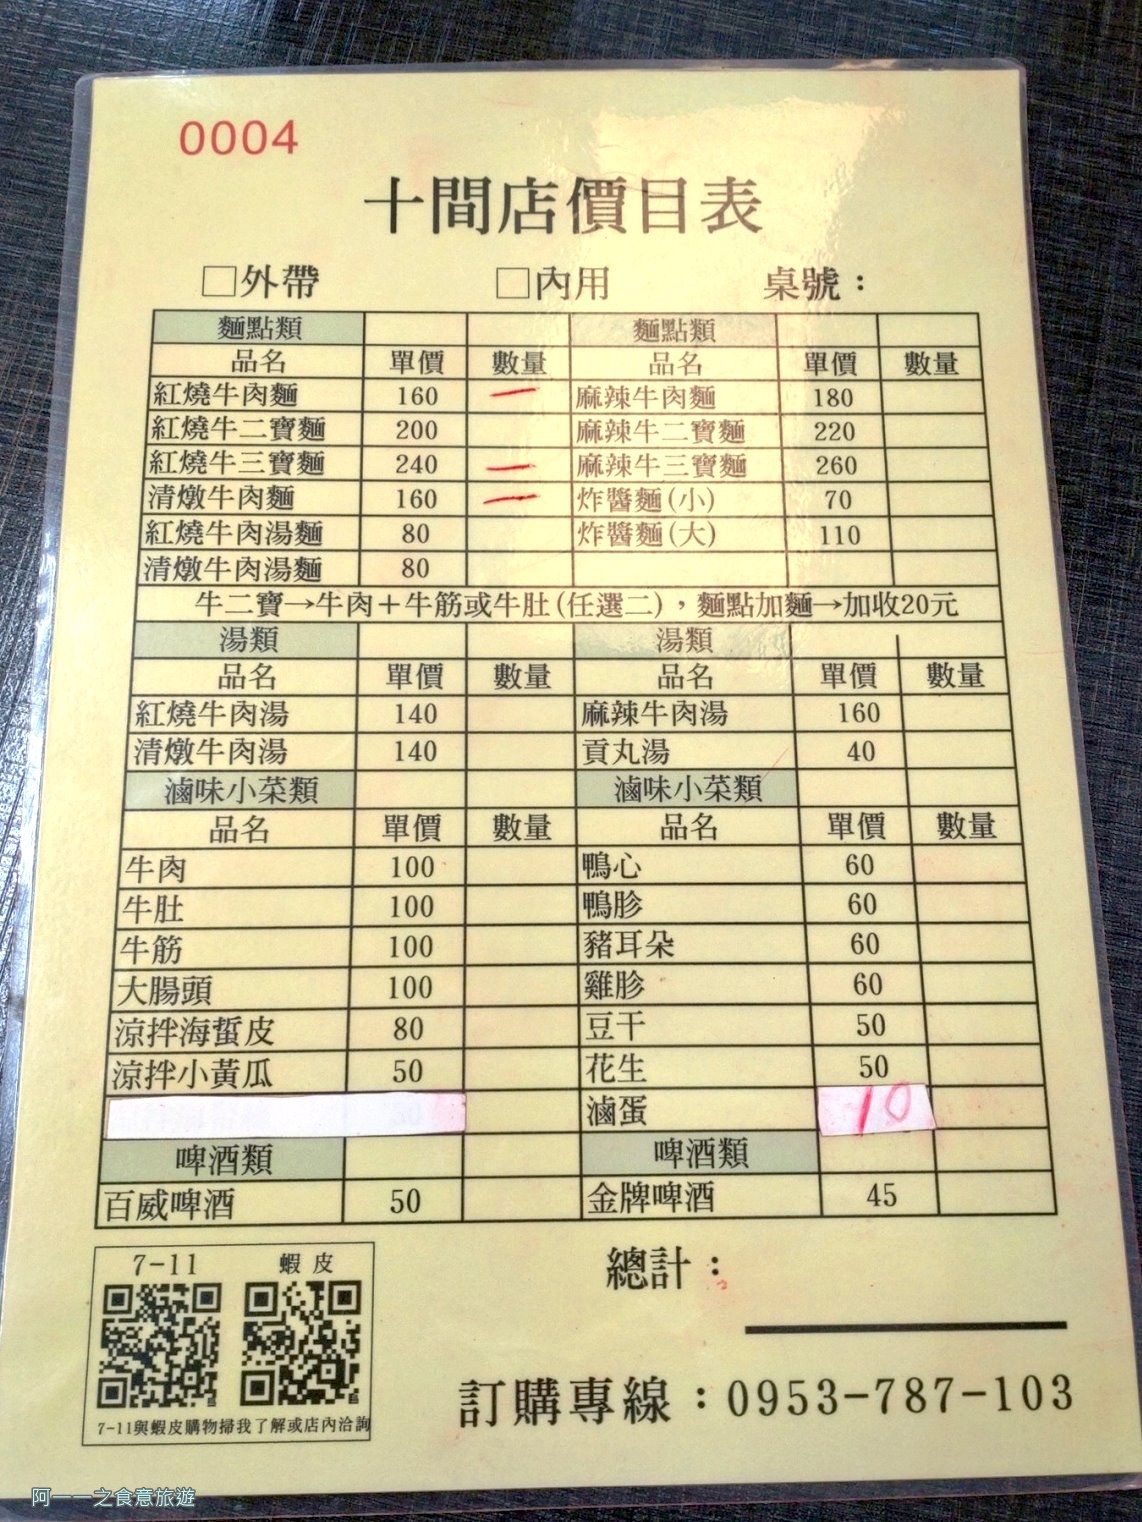 0004
十間店價目表
□外帶 □內用 桌號：
麵點類 麵點類
品名 單價 數量 品名 單價 數量
紅燒牛肉麵 160 一 麻辣牛肉麵 180
紅燒牛二寶麵 200 麻辣牛二寶麵 220
紅燒牛三寶麵 240 一 麻辣牛三寶麵 260
清燉牛肉麵 160 一 炸醬麵(小) 70
紅燒牛肉湯麵 80 炸醬麵(大) 110
清燉牛肉湯麵 80
牛二寶→牛肉＋牛筋或牛肚(任選二)，麵點加麵→加收20元
湯類 湯類
品名 單價 數量 品名 單價 數量
紅燒牛肉湯 140 麻辣牛肉湯 160
清燉牛肉湯 140 貢丸湯 40
滷味小菜類 滷味小菜類
品名 單價 數量 品名 單價 數量
牛肉 100 鴨心 60
牛肚 100 鴨胗 60
牛筋 100 豬耳朵 60
大腸頭 100 雞胗 60
涼拌海蜇皮 80 豆干 50
涼拌小黃瓜 50 花生 50
滷蛋 10
啤酒類 啤酒類
百威啤酒 50 金牌啤酒 45
7-11 蝦皮
總計：
7-11與蝦皮購物掃我了解或店內洽詢
訂購專線：0953-787-103
阿一一之食意旅遊